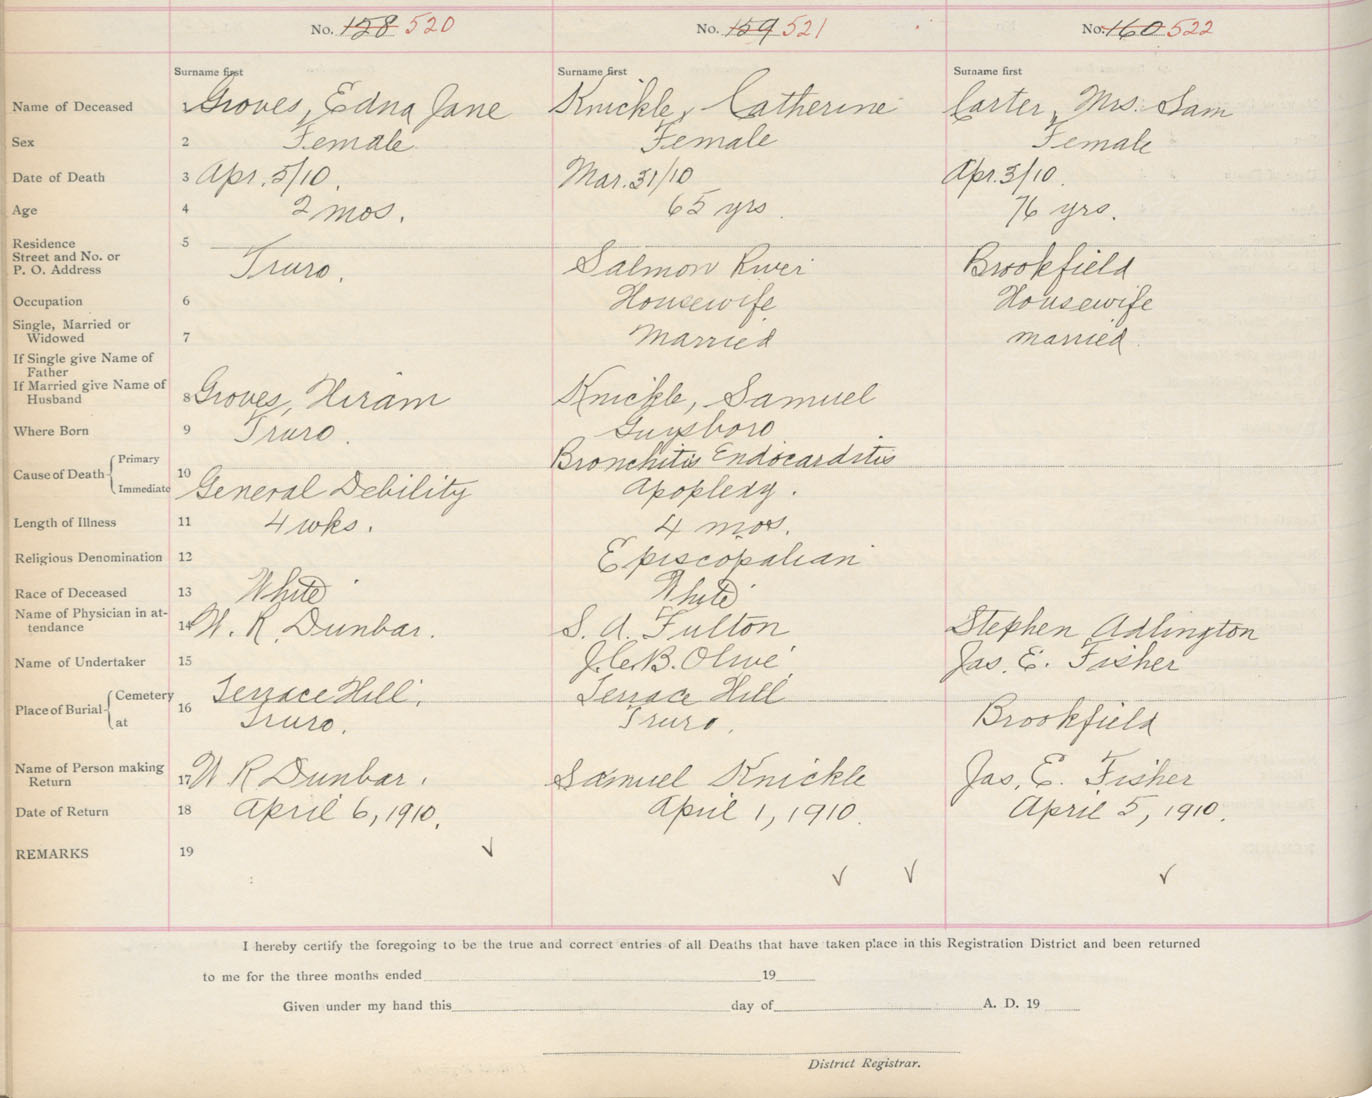 No. 158 520 No. 159 521 No. 160 522
Surname first Surname first Surname first
Name of Deceased 1 Groves, Edna Jane Knickle, Catherine Carter, Mrs. Sam
Sex 2 Female Female Female
Date of Death 3 Apr. 5/10. Mar. 31/10 Apr. 3/10.
Age 4 2 mos. 65 yrs. 76 yrs.
Residence 5
Street and No. or
P. O. Address Truro. Salmon River Brookfield
Occupation 6 Housewife Housewife
Single, Married or
Widowed 7 Married married.
If Single give Name of
Father
If Married give Name of
Husband 8 Groves, Hiram Knickle, Samuel
Where Born 9 Truro. Guysboro
Cause of Death Primary Bronchitis Endocarditis
10
Immediate General Debility Apoplexy.
Length of Illness 11 4 wks. 4 mos.
Religious Denomination 12 Episcopalian
Race of Deceased 13 White White
Name of Physician in at-
tendance 14 W. R. Dunbar. S. A. Fulton Stephen Adlington
Name of Undertaker 15 J. C. B. Olive Jas. E. Fisher
Place of Burial Cemetery Terrace Hill. Terrace Hill
16
at Truro. Truro. Brookfield
Name of Person making
Return 17 W R Dunbar. Samuel Knickle Jas. E. Fisher
Date of Return 18 April 6, 1910. April 1, 1910. April 5, 1910.
REMARKS 19 ✓
✓ ✓ ✓
I hereby certify the foregoing to be the true and correct entries of all Deaths that have taken place in this Registration District and been returned
to me for the three months ended 19
Given under my hand this day of A. D. 19
District Registrar.